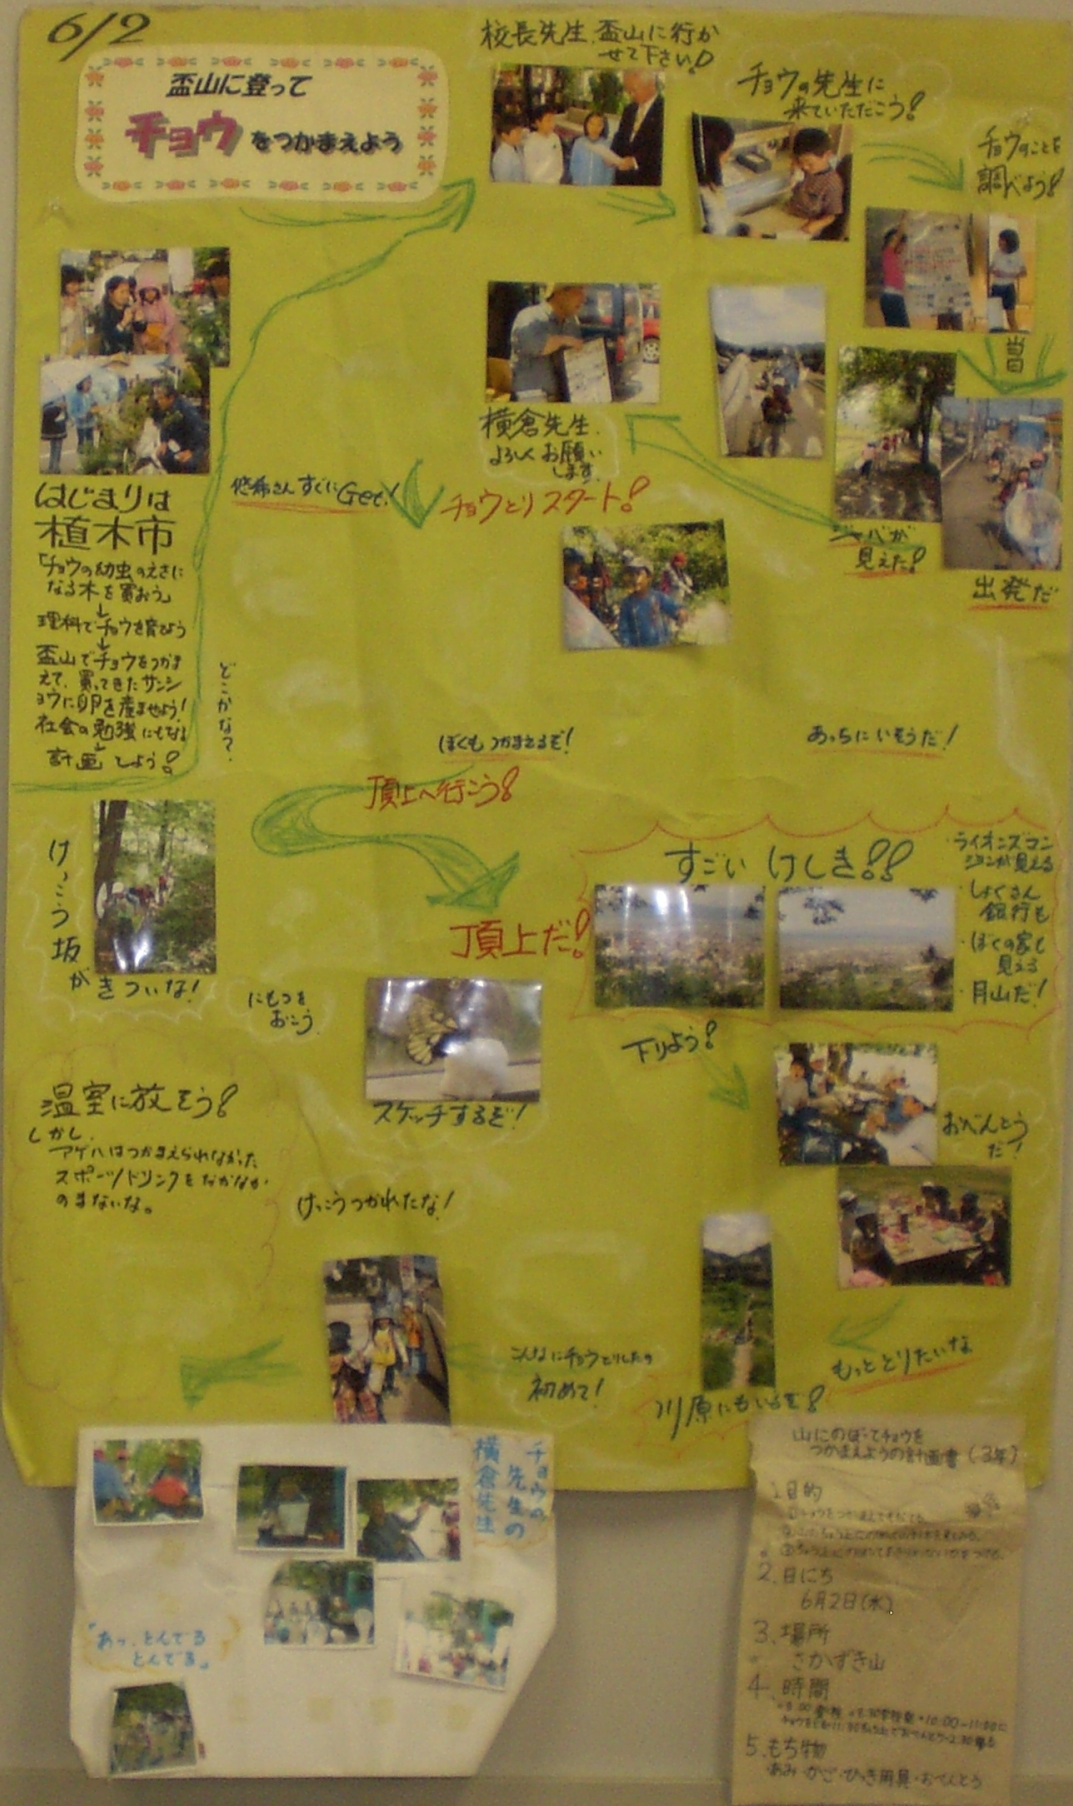 6/2
盃山に登って
チョウをつかまえよう
校長先生、盃山に行か
せて下さい!
チョウの先生に
来ていただこう!
チョウのことを
調べよう!
当日
出発だ
ジャバが
見えた!
横倉先生、
よろしくお願い
します。
はじまりは
植木市
「チョウの幼虫のえさに
なる木を買おう」
理科でチョウを育びよう
盃山でチョウをつかま
えて、買ってきたサンシ
ョウに卵を産ませよう!
社会の勉強にもなる
計画しよう!
さんすぐにGet!
チョウとりスタート!
どこかな?
ぼくもつかまえるぞ!
あっちにいそうだ!
頂上へ行こう!
けっこう坂がきついな!
頂上だ!
すごいけしき!!
・ライオンズマン
ションが見える
・しょくさん
銀行も
・ぼくの家も
見える
・月山だ!
にもつを
おこう
スケッチするぞ!
下りよう!
おべんとう
だ!
もっととりたいな
川原にもいるぞ!
こんなにチョウとりしたの
初めて!
けっこうつかれたな!
温室に放そう!
しかし、
アゲハはつかまえられなかった
スポーツドリンクをなかなか
のまないな。
チョウの
先生の
横倉先生
「あっ、とんでる
とんでる」
山にのぼってチョウを
つかまえようの計画書(3年)
1.目的
2.日にち
6月2日(水)
3.場所
さかずき山
4.時間
5.もち物
・あみ・かご・ひっき用具・おべんとう